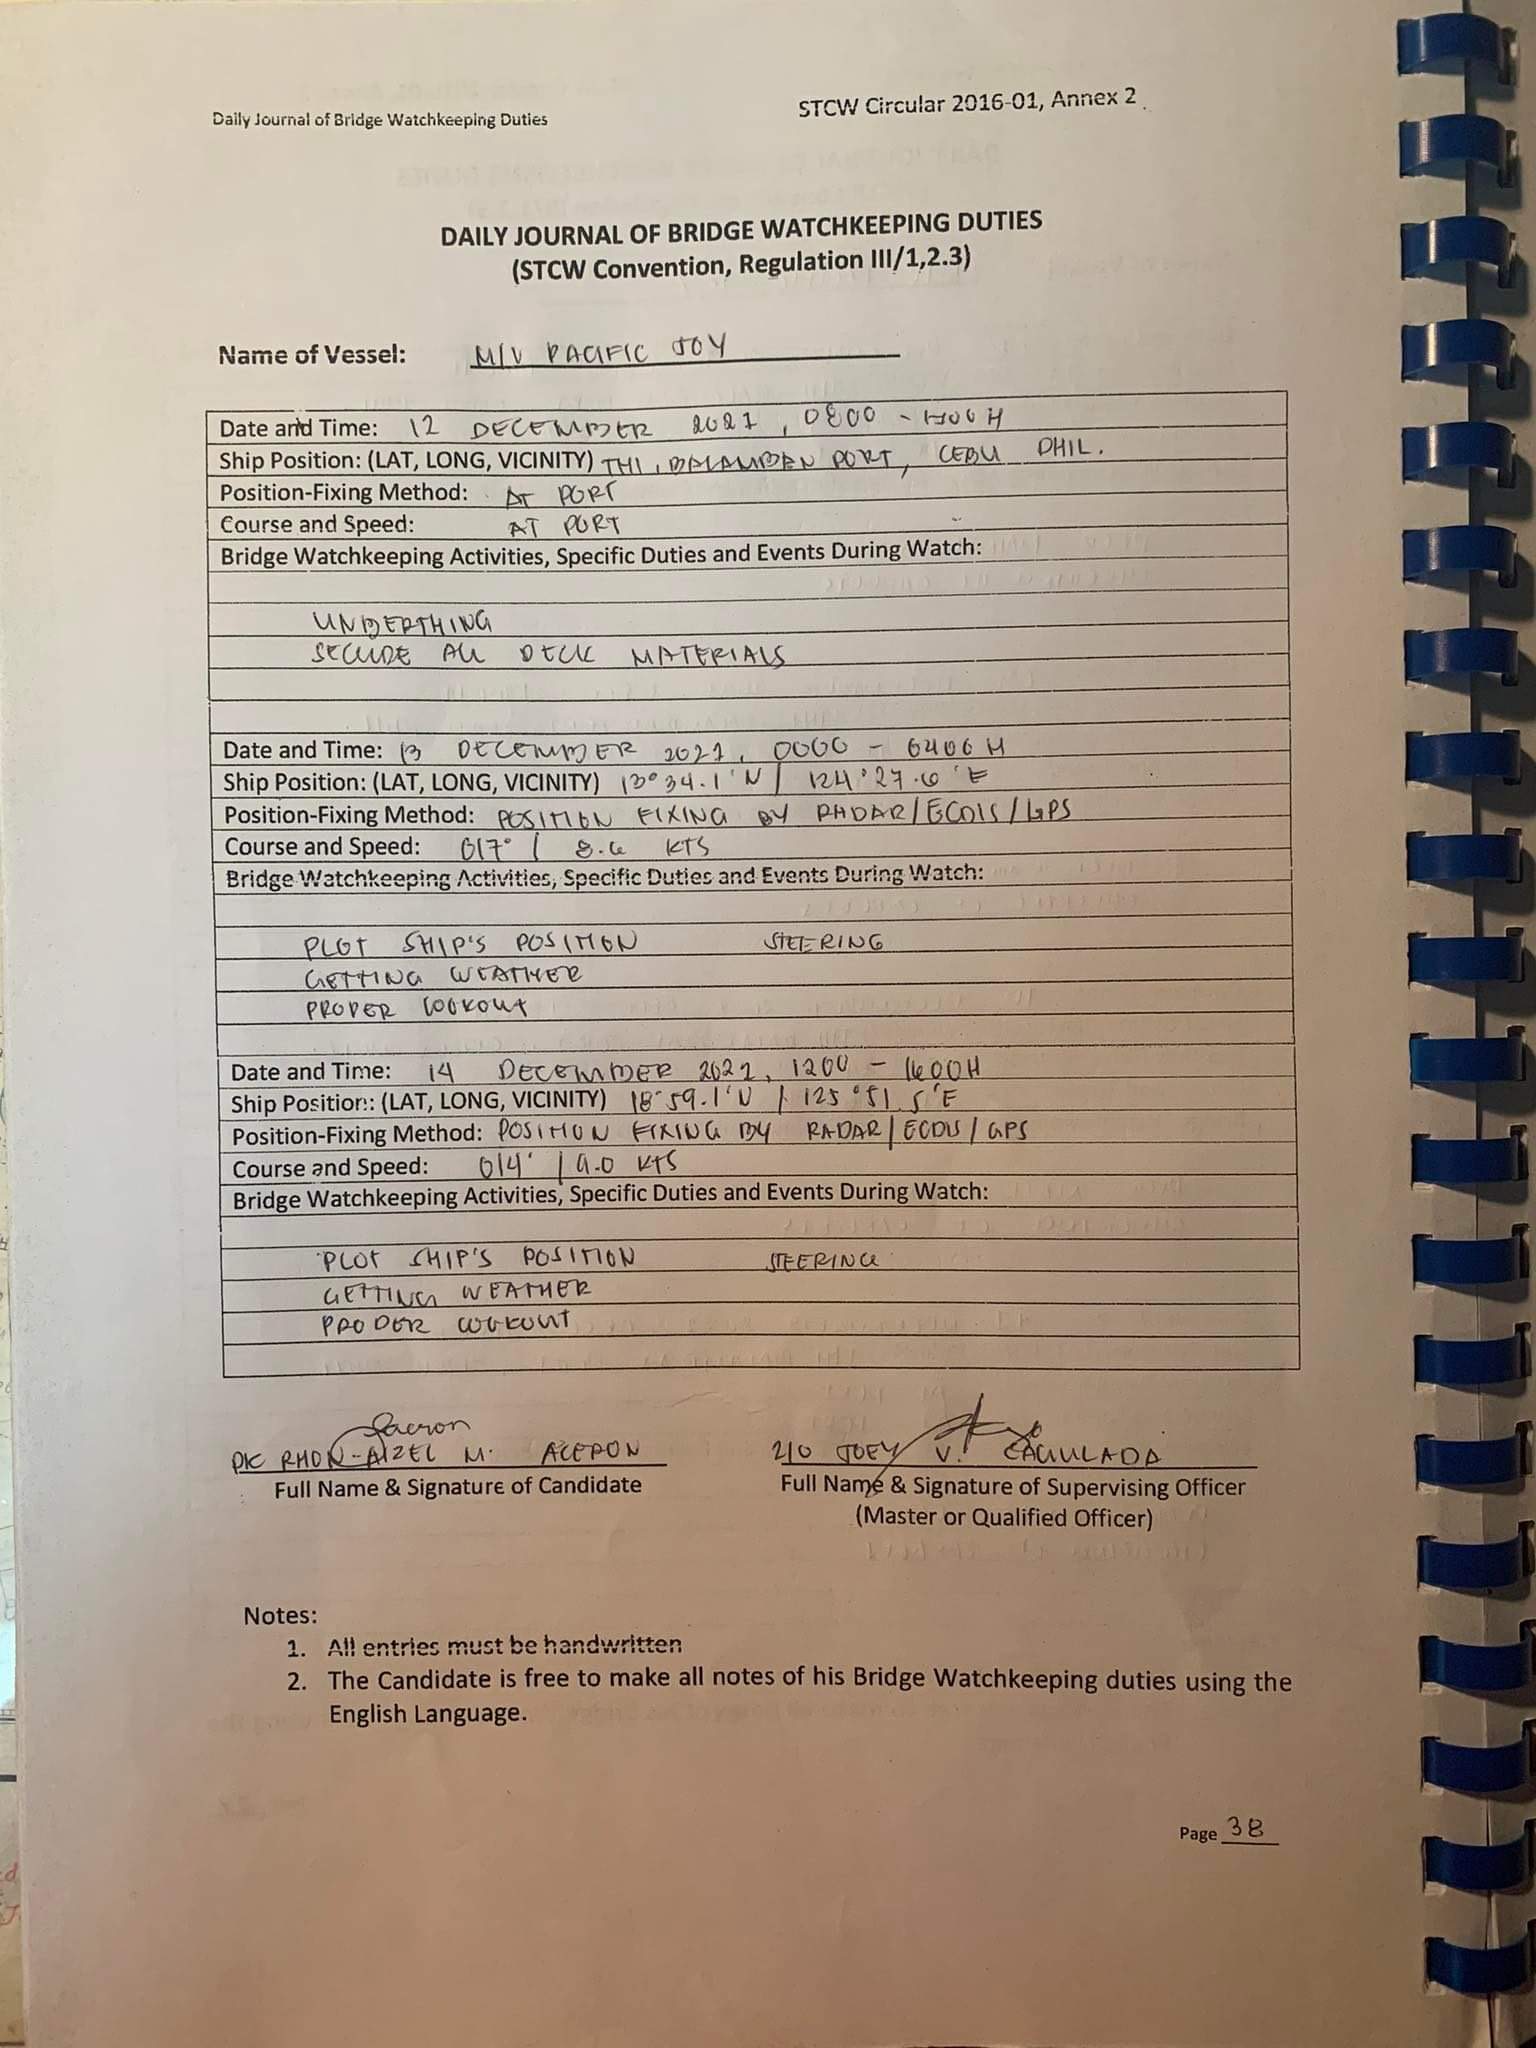 Daily Journal of Bridge Watchkeeping Duties
STCW Circular 2016-01, Annex 2
DAILY JOURNAL OF BRIDGE WATCHKEEPING DUTIES
(STCW Convention, Regulation III/1,2.3)
Name of Vessel: M/V PACIFIC JOY
Date and Time: 12 DECEMBER 2021, 0800 - 1200 H
Ship Position: (LAT, LONG, VICINITY) THI, BALAMBAN PORT, CEBU PHIL.
Position-Fixing Method: AT PORT
Course and Speed: AT PORT
Bridge Watchkeeping Activities, Specific Duties and Events During Watch:
UNBERTHING
SECURE ALL DECK MATERIALS
Date and Time: 13 DECEMBER 2021, 0000 - 0400 H
Ship Position: (LAT, LONG, VICINITY) 13°34.1'N / 124°27.6'E
Position-Fixing Method: POSITION FIXING BY RADAR/ECDIS/GPS
Course and Speed: 017° / 8.6 KTS
Bridge Watchkeeping Activities, Specific Duties and Events During Watch:
PLOT SHIP'S POSITION STEERING
GETTING WEATHER
PROPER LOOKOUT
Date and Time: 14 DECEMBER 2021, 1200 - 1600H
Ship Position: (LAT, LONG, VICINITY) 18°59.1'N / 125°51.5'E
Position-Fixing Method: POSITION FIXING BY RADAR/ECDIS/GPS
Course and Speed: 014° / 9.0 KTS
Bridge Watchkeeping Activities, Specific Duties and Events During Watch:
PLOT SHIP'S POSITION STEERING
GETTING WEATHER
PROPER LOOKOUT
RHON-AIZEL M. ACERON 2/O JOEY V. CAGULADA
Full Name & Signature of Candidate Full Name & Signature of Supervising Officer
(Master or Qualified Officer)
Notes:
1. All entries must be handwritten
2. The Candidate is free to make all notes of his Bridge Watchkeeping duties using the
English Language.
Page 38